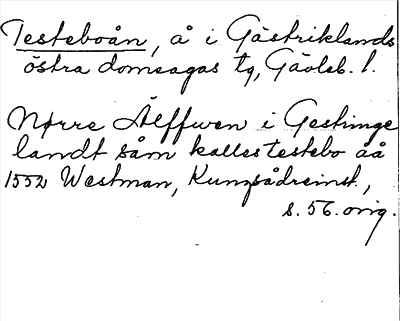 Testeboån, å i Gästriklands
östra domsagas tg, Gävleb. l.
Nørre Älffwen i Gestringe
landt såm kalles testebo åå
1552 Westman, Kungsådreinst.,
s. 56. orig.